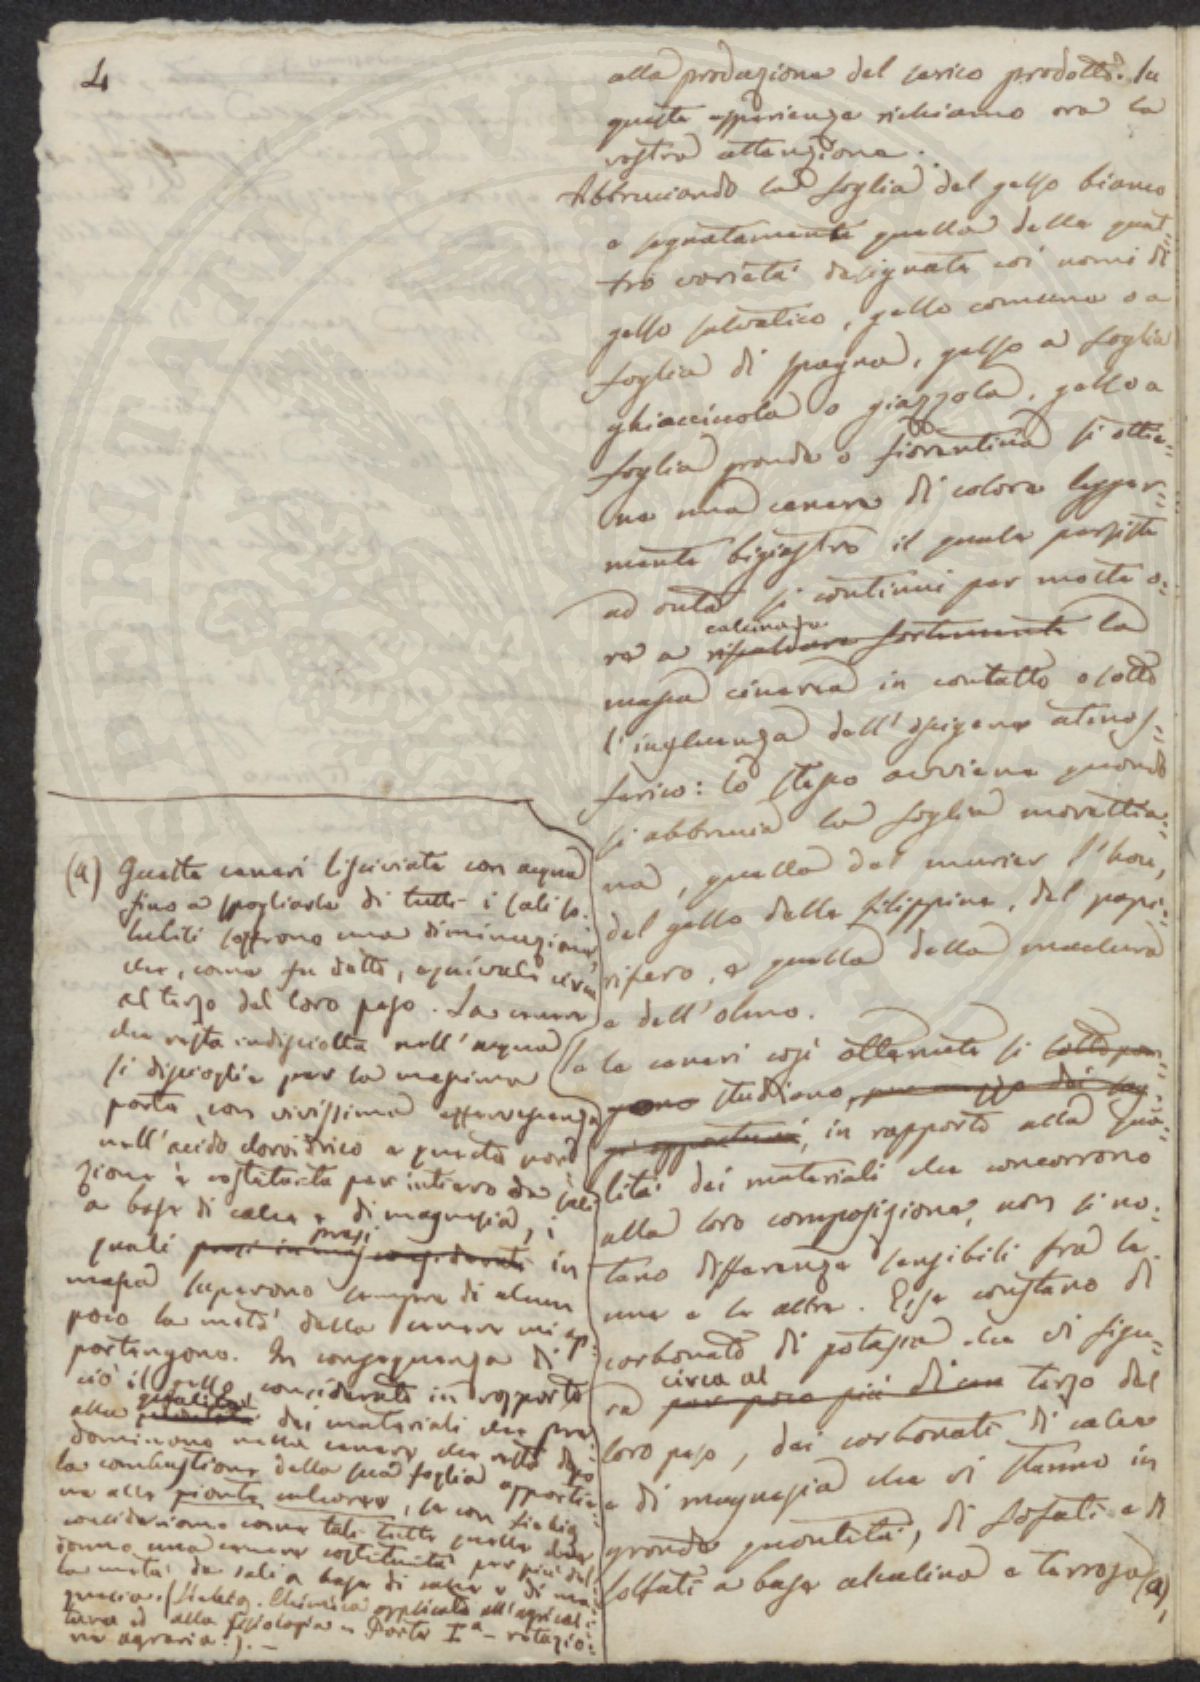 4
alla produzione del serico prodotto. Su
queste esperienze richiamo ora la
vostra attenzione.
Abbruciando la foglia del gelso bianco
e segnatamente quella delle quat=
tro varietà designate coi nomi di
gelso salvatico, gelso comune o a
foglia di spagna, gelso a foglia
ghiacciuola o giazzola, gelso a
foglia grande o fiorentina si ottie=
ne una cenere di colore legger=
mente bigiastro il quale persiste
ad onta si continui per molte o=
re a calcinare la
massa cinerea in contatto o sotto
l'influenza dell'ossigeno atmos=
ferico: lo stesso avviene quando
si abbrucia la foglia morettia=
na, quella del murier l'hou,
del gelso delle filippine, del papi=
rifero, e quella della maclura
e dell'olmo.
Se le ceneri così ottenute si sottopon=
gono studiano in rapporto alla qua=
lità dei materiali che concorrono
alla loro composizione, non si no=
tano differenze sensibili fra le
une e le altre. Esse constano di
carbonato di potassa che vi figu=
ra circa al
per poco più di un terzo del
loro peso, dei carbonati di calce
e di magnesia che vi stanno in
grande quantità, di fosfati e di
solfati a base alcalina e terrosa (a),
(a) Queste ceneri lisciviate con acqua
fino a spogliarle di tutti i sali so=
lubili soffrono una diminuzione
che, come fu detto, equivale circa
al terzo del loro peso. La cenere
che resta indisciolta nell'acqua
si discioglie per la massima
parte con vivissima effervescenza
nell'acido cloroidrico e questa por
zione è costituita per intiero da sali
a base di calce e di magnesia, i
quali presi in
massa superano sempre di alcun
poco la metà della cenere cui ap=
partengono. In conseguenza di
ciò il gelso considerato in rapporto
alla qualità dei materiali che pre
dominano nella cenere che resta dopo
la combustione della sua foglia appartie=
ne alle piante calcaree, se con Liebig
consideriamo come tali tutte quelle che
danno una cenere costituita per più del=
la metà da sali a base di calce e di ma=
gnesia. (Liebig. Chimica applicata all'agricol=
tura ed alla fisiologia - Parte Iª - rotazio=
ne agraria.). -